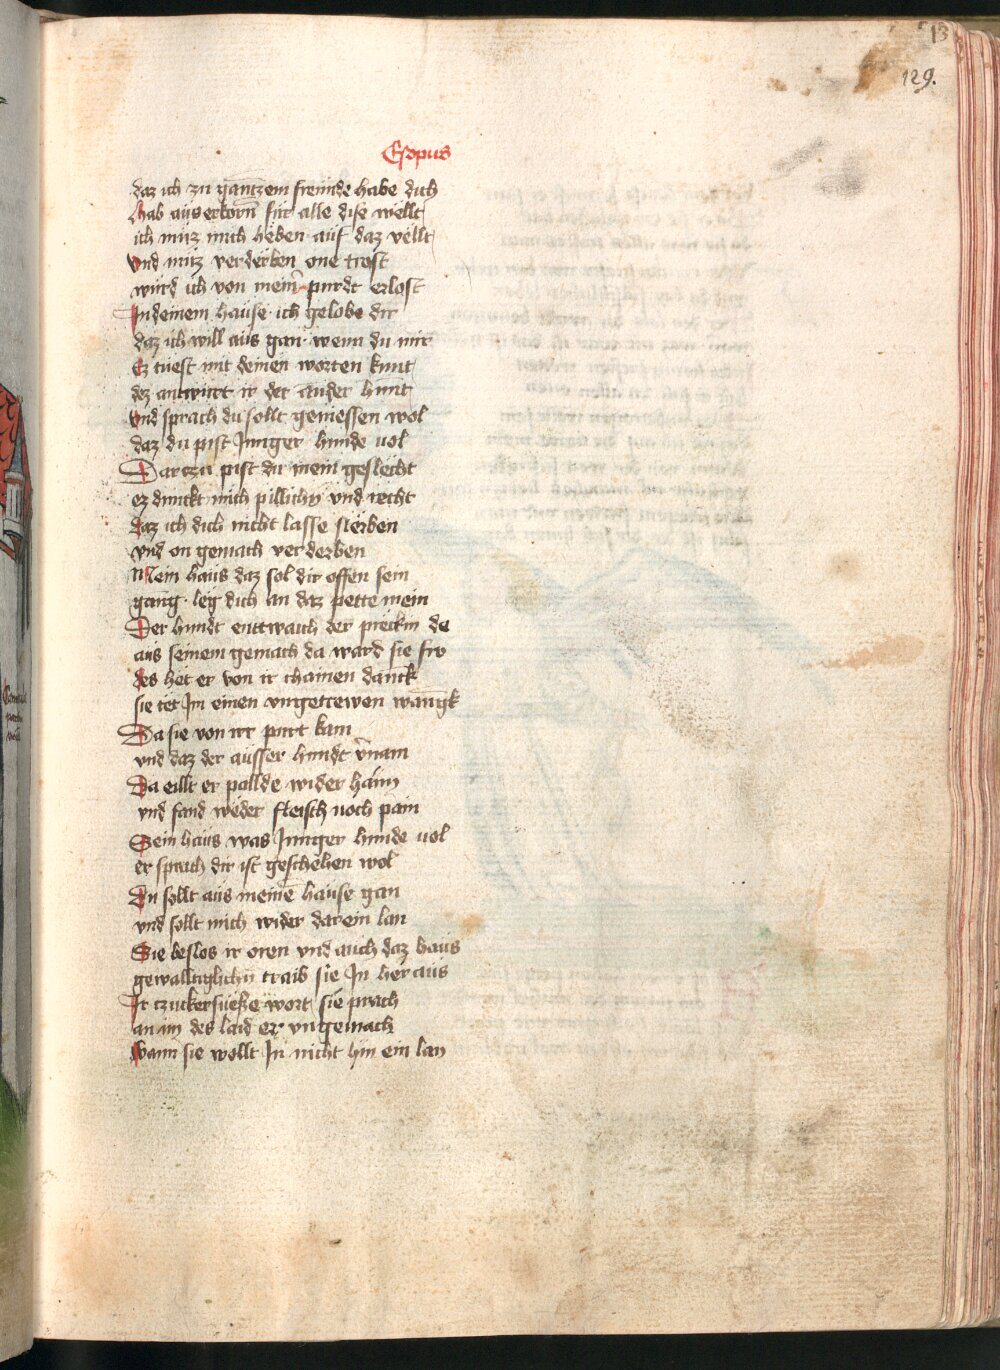 13
129.
Esopus
daz ich zu gantzem freunde habe dich
Hab auserkorn für alle dise wellt
ich muz mich heben auf daz vellt
Vnd muz verderben one trost
würd ich von mein purde erlost
In deinem hause ich gelobe dir
daz ich will aus gan wenn du mir
Ez tuest mit deinen worten kunt
dez antwurt ir der ander hunt
Vnd sprach du sollt geniessen wol
daz du pist Juniger hunde uol
Dar czu pist du mein geslecht
ez dunckt mich pillich vnd recht
Daz ich dich nicht lasse sterben
vnd on gemach verderben
Mein haus daz sol dir offen sein
gang leg dich an daz pette mein
Der hundt enttwaich der preckin do
aus seinem gemach da ward sie fro
des het er von ir chainen danck
sie tet Jm einen vngetrewen wangk
Da sie von irr purt kam
vnd daz der ausser hundt v̄nam
Da eillt er pallde wider haim
vnd fand weder fleisch noch pain
Sein haus was Juniger hunde uol
er sprach dir ist geschehen wol
Du sollt aus meinē hause gan
vnd sollt mich wider darein lan
Sie beslos ir oren vnd auch daz haus
gewalltiglichn traib sie Jn her aus
Ir czuckersüeße wort sie prach
an im des laid er vngemach
Wann sie wollt Jn nicht hin ein lan